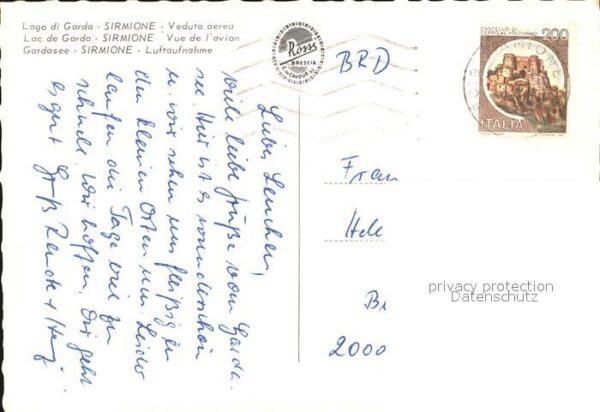 Lago di Garda - SIRMIONE - Veduta aerea
Lac de Garda - SIRMIONE - Vue de l'avion
Gardasee - SIRMIONE - Luftaufnahme
Rossi
BRESCIA
BRD
CASTELLO DI
CERRO AL VOLTURNO
200
ITALIA
SIRMIONE
Liebes Lenchen,
viele liebe Grüße vom Garda-
see. Hier ist es wunderschön
u. wir sehen uns fleißig in
den kleinen Orten um. Leider
laufen die Tage viel zu
schnell. Wir hoffen, Dir geht
es gut. Gruß
Frau
Hele
2000
privacy protection
Datenschutz